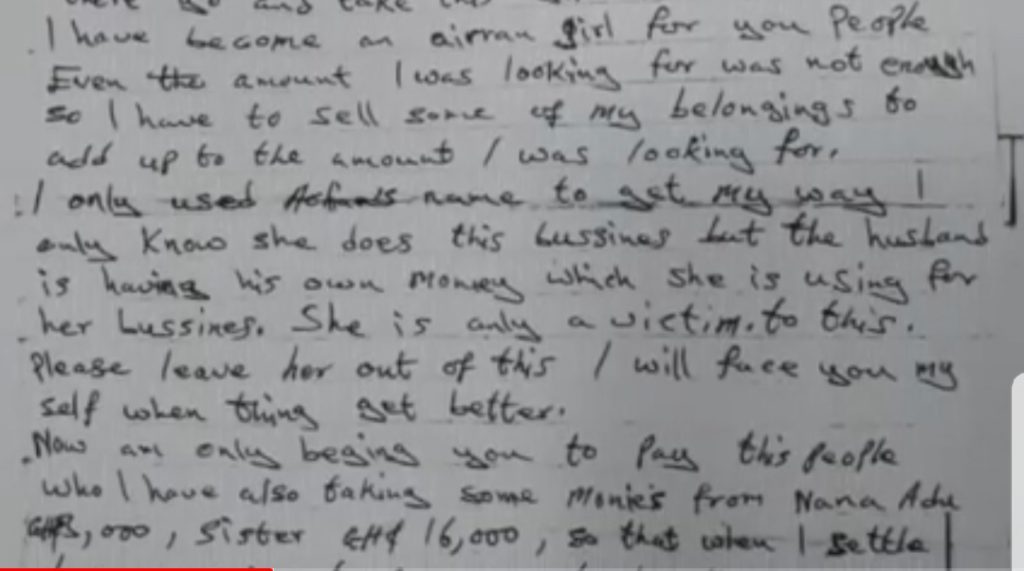 and take
I have become an airran girl for you People
Even the amount I was looking for was not enough
so I have to sell some of my belongings to
add up to the amount I was looking for.
I only used name to get my way I
only Know she does this bussines but the husband
is having his own Money which she is using for
her bussines. She is only a victim. to this.
Please leave her out of this I will face you my
self when thing get better.
Now am only beging you to Pay this People
who I have also taking some Monies from Nana Adu
,000, Sister GH¢ 16,000, so that when I settle